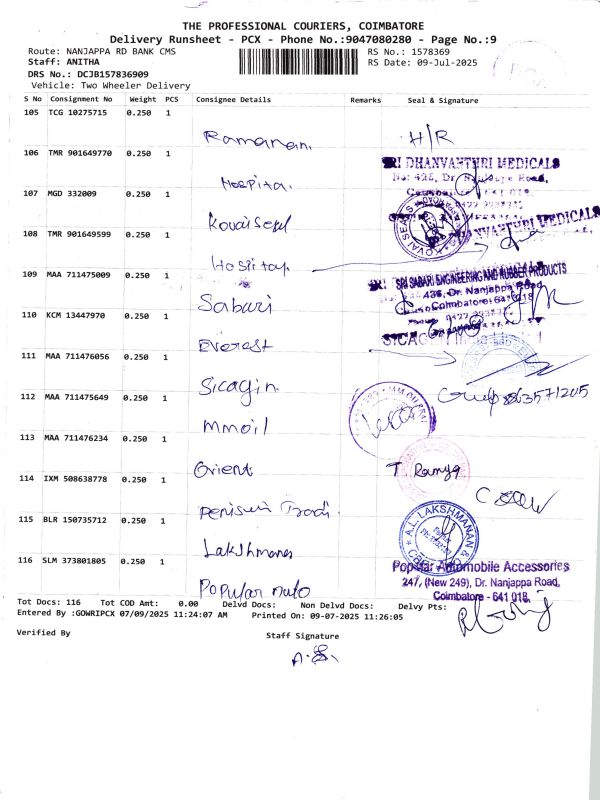 THE PROFESSIONAL COURIERS, COIMBATORE
Delivery Runsheet - PCX - Phone No.:9047080280 - Page No.:9
Route: NANJAPPA RD BANK CMS
RS No.: 1578369
Staff: ANITHA
RS Date: 09-Jul-2025
DRS No.: DCJB157836909
Vehicle: Two Wheeler Delivery
S No Consignment No Weight PCS Consignee Details Remarks Seal & Signature
105 TCG 10275715 0.250 1
Ramanan. H/R
106 TMR 901649770 0.250 1
SRI DHANVANTHRI MEDICALS
Hospita.
107 MGD 332009 0.250 1
Kovai Seal
KOVAI SEALS
108 TMR 901649599 0.250 1
Hospital
109 MAA 711475009 0.250 1
SRI SABARI ENGINEERING AND RUBBER PRODUCTS
436, Dr. Nanjappa Road
Coimbatore-641 018
Sabari
110 KCM 13447970 0.250 1
Everest
111 MAA 711476056 0.250 1
Sicagin
112 MAA 711475649 0.250 1
mmoil
113 MAA 711476234 0.250 1
Orient T. Ramya
114 IXM 508638778 0.250 1
115 BLR 150735712 0.250 1
A.L. LAKSHMANAN &
Lakshmanan
116 SLM 373801805 0.250 1
Popular Automobile Accessories
247, (New 249), Dr. Nanjappa Road,
Coimbatore - 641 018.
Popular Auto
Tot Docs: 116 Tot COD Amt: 0.00 Delvd Docs: Non Delvd Docs: Delvy Pts:
Entered By :GOWRIPCX 07/09/2025 11:24:07 AM Printed On: 09-07-2025 11:26:05
Verified By
Staff Signature